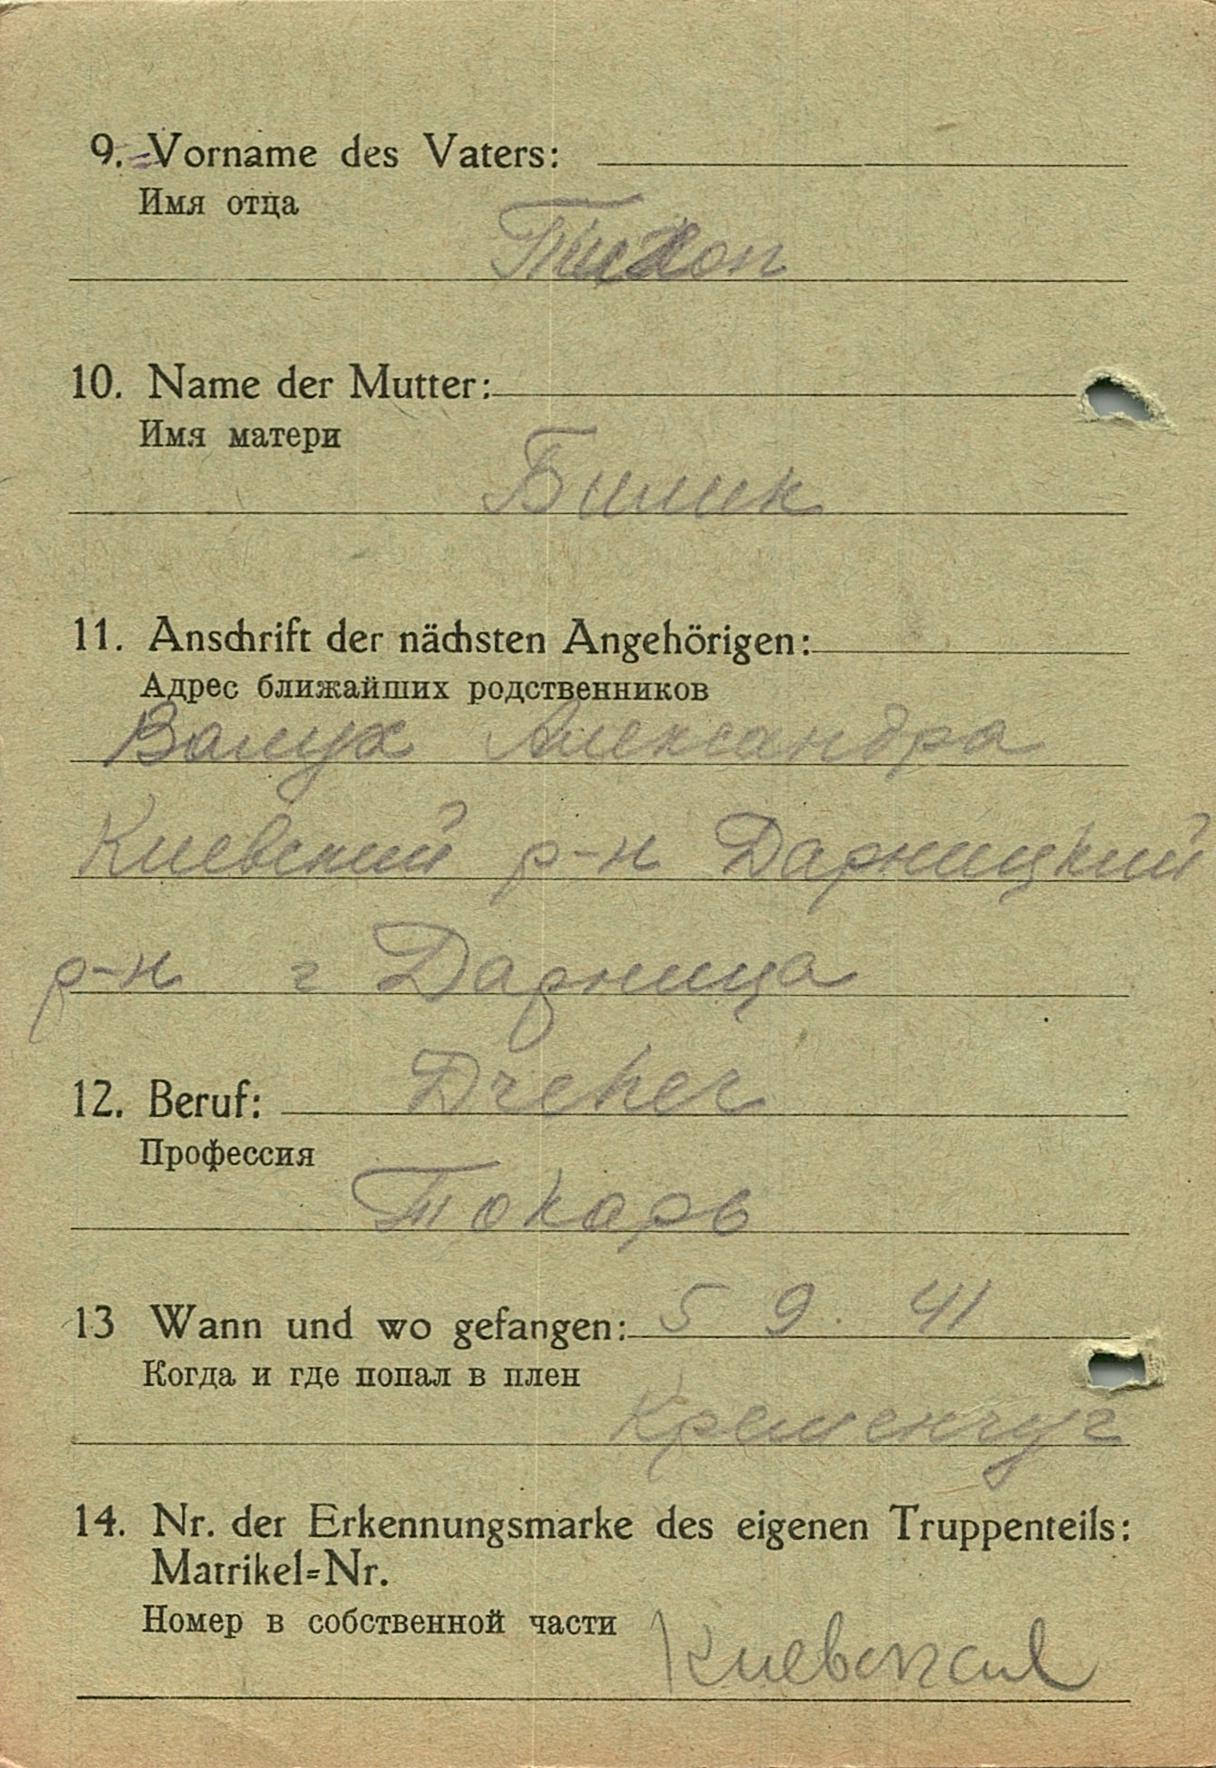 9. Vorname des Vaters:
Имя отца
Тихон
10. Name der Mutter:
Имя матери
Билик
11. Anschrift der nächsten Angehörigen:
Адрес ближайших родственников
Валух Александра
Киевский р-н Дарницкий
р-н г Дарница
12. Beruf: Dreher
Профессия
Токарь
13 Wann und wo gefangen: 5 9. 41
Когда и где попал в плен
Кременчуг
14. Nr. der Erkennungsmarke des eigenen Truppenteils:
Matrikel=Nr.
Номер в собственной части